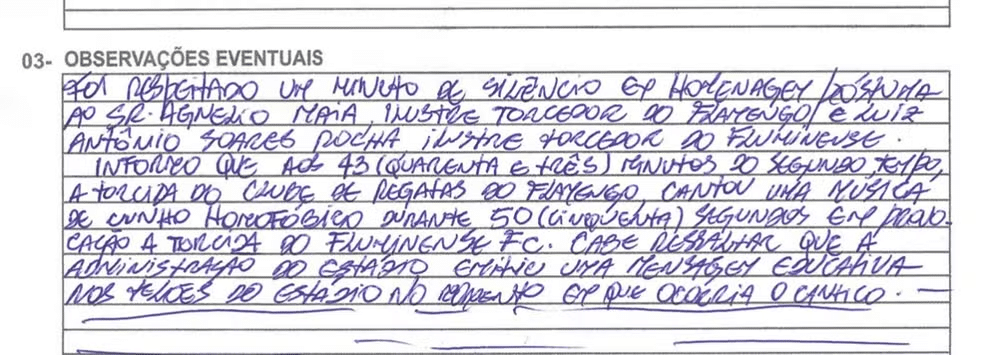 03- OBSERVAÇÕES EVENTUAIS
FOI RESPEITADO UM MINUTO DE SILÊNCIO EM HOMENAGEM PÓSTUMA
AO SR. AGNELIO MAIA, ILUSTRE TORCEDOR DO FLAMENGO, E LUIZ
ANTÔNIO SOARES ROCHA ILUSTRE TORCEDOR DO FLUMINENSE.
INFORMO QUE AOS 43 (QUARENTA E TRÊS) MINUTOS DO SEGUNDO TEMPO,
A TORCIDA DO CLUBE DE REGATAS DO FLAMENGO CANTOU UMA MÚSICA
DE CUNHO HOMOFÓBICO DURANTE 50 (CINQUENTA) SEGUNDOS EM PROVO-
CAÇÃO A TORCIDA DO FLUMINENSE FC. CABE RESSALTAR QUE A
ADMINISTRAÇÃO DO ESTÁDIO EMITIU UMA MENSAGEM EDUCATIVA
NOS TELÕES DO ESTÁDIO NO MOMENTO EM QUE OCORRIA O CANTICO.